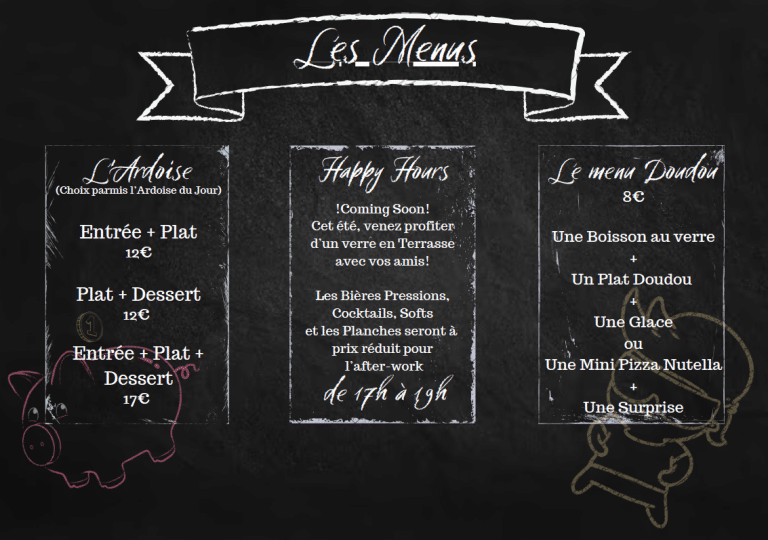 Les Menus
L'Ardoise
(Choix parmis l'Ardoise du Jour)
Entrée + Plat
12€
Plat + Dessert
12€
Entrée + Plat +
Dessert
17€
1
Happy Hours
!Coming Soon!
Cet été, venez profiter
d'un verre en Terrasse
avec vos amis!
Les Bières Pressions,
Cocktails, Softs
et les Planches seront à
prix réduit pour
l'after-work
de 17h à 19h
Le menu Doudou
8€
Une Boisson au verre
+
Un Plat Doudou
+
Une Glace
ou
Une Mini Pizza Nutella
+
Une Surprise